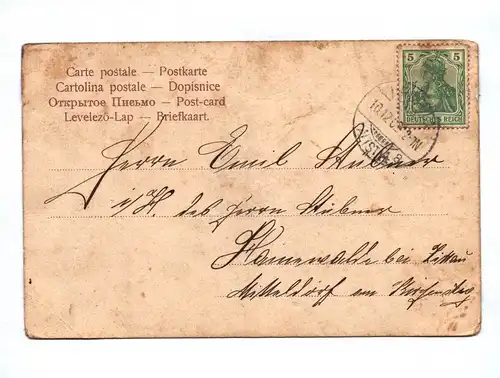 Carte postale — Postkarte
Cartolina postale — Dopisnice
Открытое Письмо — Post-card
Levelező-Lap — Briefkaart.
5 5
DEUTSCHES REICH
Herrn Emil Stübner
i/H. des Herrn Stübner
Hainewalde bei Zittau
Mitteldorf am